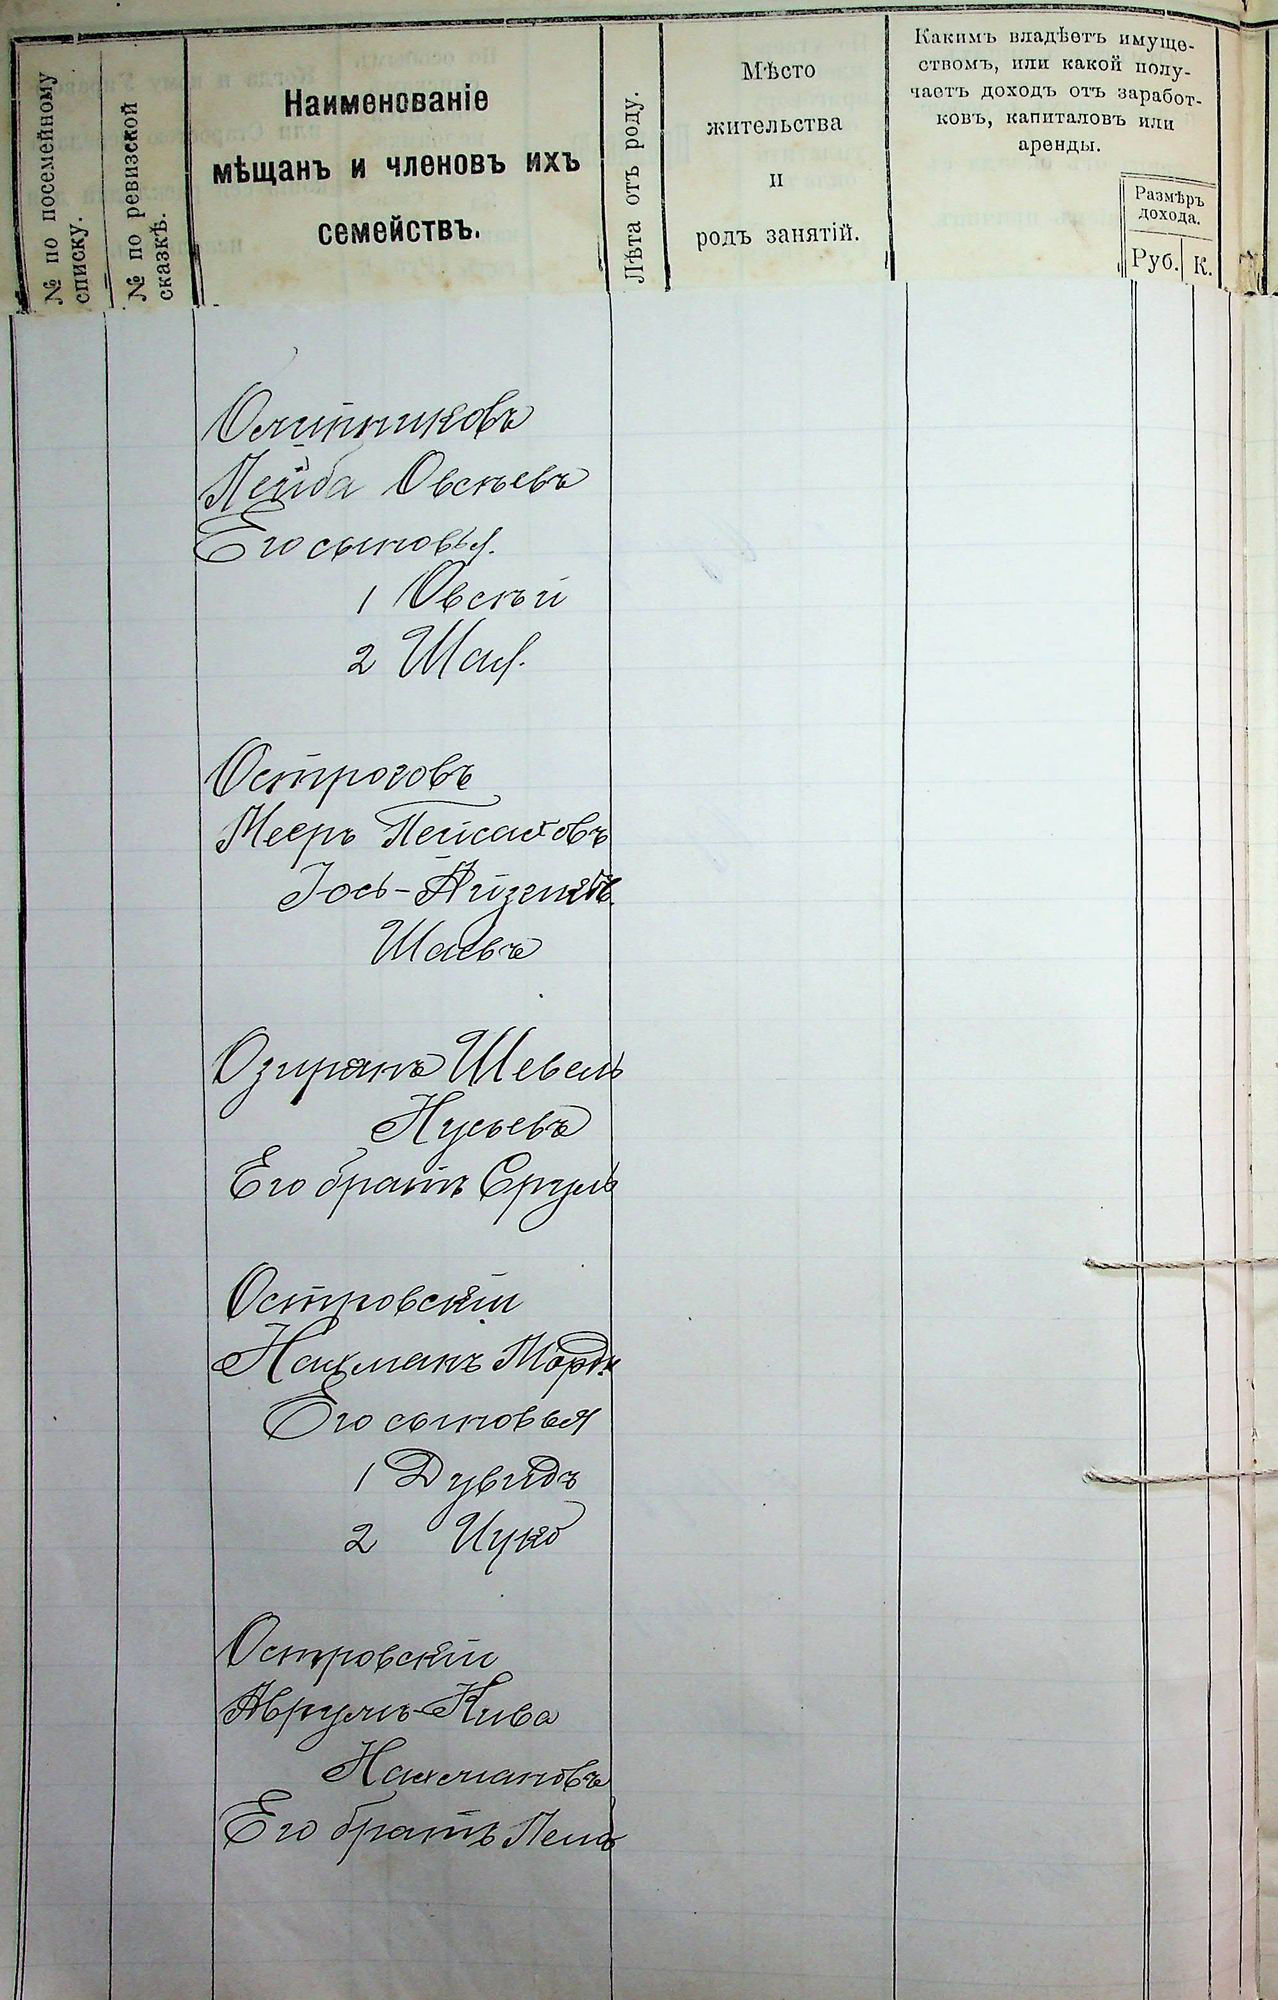 № по посемейному
списку.
№ по ревизской
сказкѣ.
Наименованіе
мѣщанъ и членовъ ихъ
семействъ.
Лѣта отъ роду.
Мѣсто
жительства
и
родъ занятій.
Какимъ владѣетъ имуще-
ствомъ, или какой полу-
чаетъ доходъ отъ заработ-
ковъ, капиталовъ или
аренды.
Размѣръ
дохода.
Руб.
К.
Лейба Овсѣевъ
Его сыновья.
1 Овсѣй
2 Шая.
Остроговъ
Мееръ Пейсаховъ
Іось-Айзикъ
Шаевъ
Озирянъ Шевель
Нусьевъ
Его братъ Сруль
Островскій
Нахманъ Мордк
Его сыновья
1 Дувидъ
2 Ицко
Островскій
Аврумъ-Кива
Нахмановъ
Его братъ